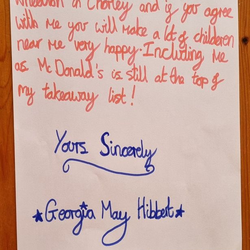 in Chorley and if you agree
with me you will make a lot of childeren
near me very happy-Including me
as Mc Donald's is still at the top of
my takeaway list!
Yours Sincerely
Georgia May Hibbert